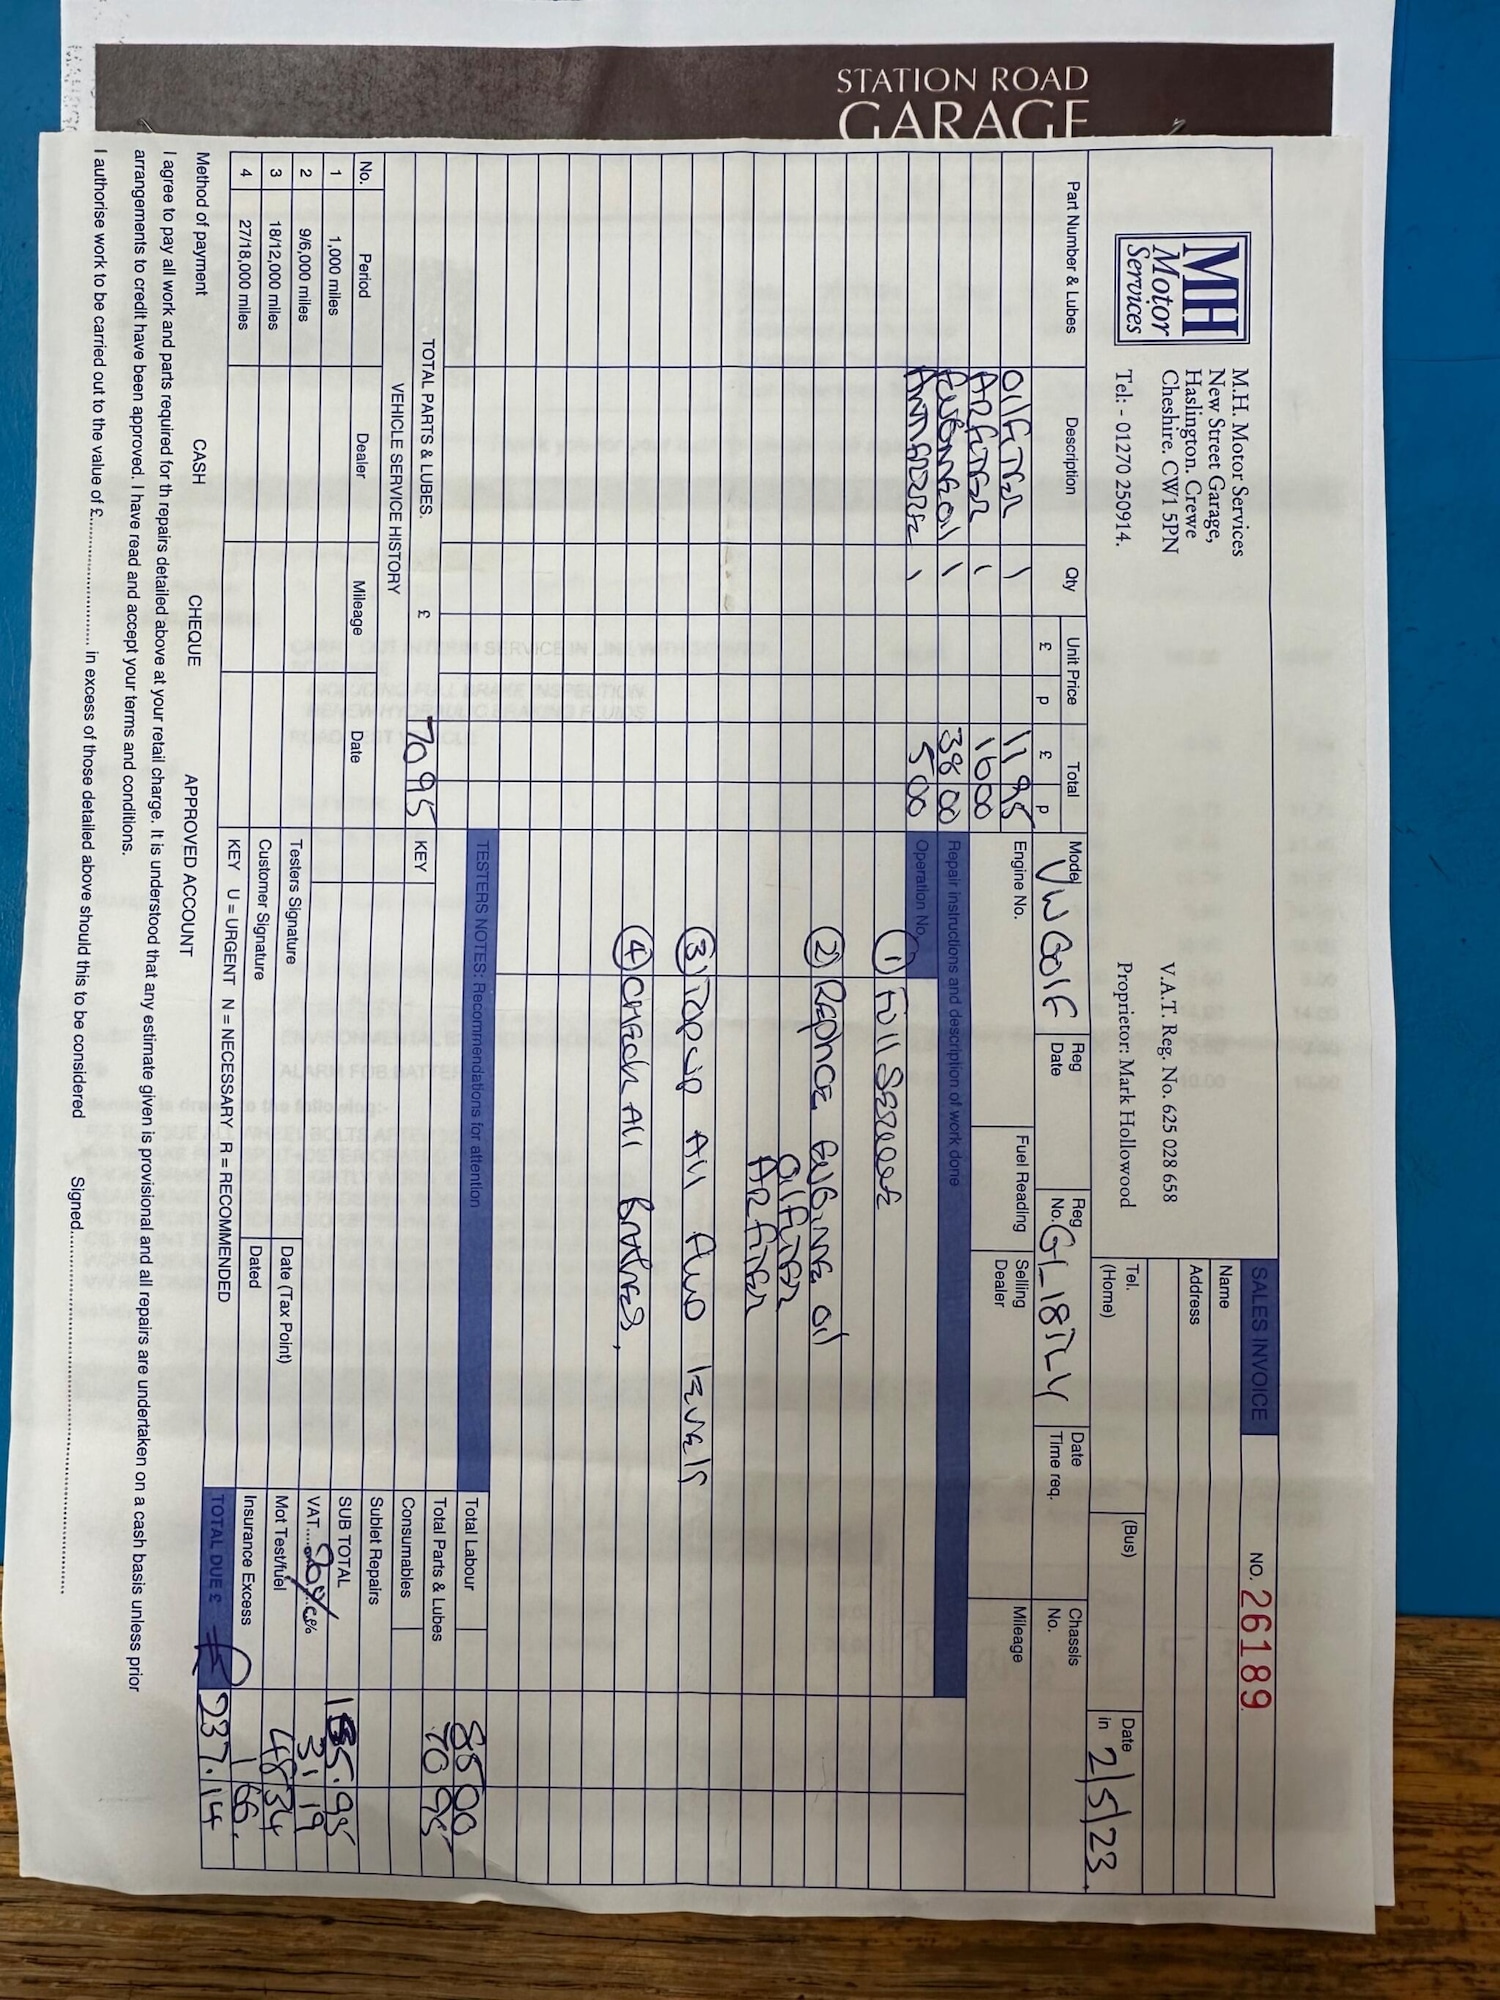 STATION ROAD
GARAGE
MH
Motor
Services
M.H. Motor Services
New Street Garage,
Haslington. Crewe
Cheshire. CW1 5PN
Tel: - 01270 250914.
V.A.T. Reg. No. 625 028 658
Proprietor: Mark Hollowood
SALES INVOICE
NO. 26189
Name
Address
Tel. (Home)
(Bus)
Date in 2/5/23.
Part Number & Lubes Description Qty Unit Price £ p Total £ p
Model VW GOlF
Reg Date
Reg No.
Date Time req.
Chassis No.
Engine No.
Fuel Reading
Selling Dealer
Mileage
OilfiTER 1 11 95
AIRfiTER 1 16 00
ENGINEOil 1 38 00
ANTIFREEZE 1 5 00
Repair instructions and description of work done
Operation No.
① Full SERVICE
② REPlACE ENGINE Oil
OilfiTER
AIRfiTER
③ Topup All fluid lEVElS
④ CHECK All BRAKES,
TESTERS NOTES: Recommendations for attention
TOTAL PARTS & LUBES. £ 70 95
KEY
VEHICLE SERVICE HISTORY
No. Period Dealer Mileage Date
1 1,000 miles
2 9/6,000 miles
3 18/12,000 miles
4 27/18,000 miles
Testers Signature
Date (Tax Point)
Customer Signature
Dated
KEY U = URGENT N = NECESSARY R = RECOMMENDED
Total Labour 85 00
Total Parts & Lubes 70 95
Consumables
Sublet Repairs
SUB TOTAL 155.95
VAT 20% 31 19
Mot Test/fuel 48 34
Insurance Excess 1 66.
TOTAL DUE £ £ 237.14
Method of payment CASH CHEQUE APPROVED ACCOUNT
I agree to pay all work and parts required for th repairs detailed above at your retail charge. It is understood that any estimate given is provisional and all repairs are undertaken on a cash basis unless prior
arrangements to credit have been approved. I have read and accept your terms and conditions.
I authorise work to be carried out to the value of £.................... in excess of those detailed above should this to be considered Signed....................